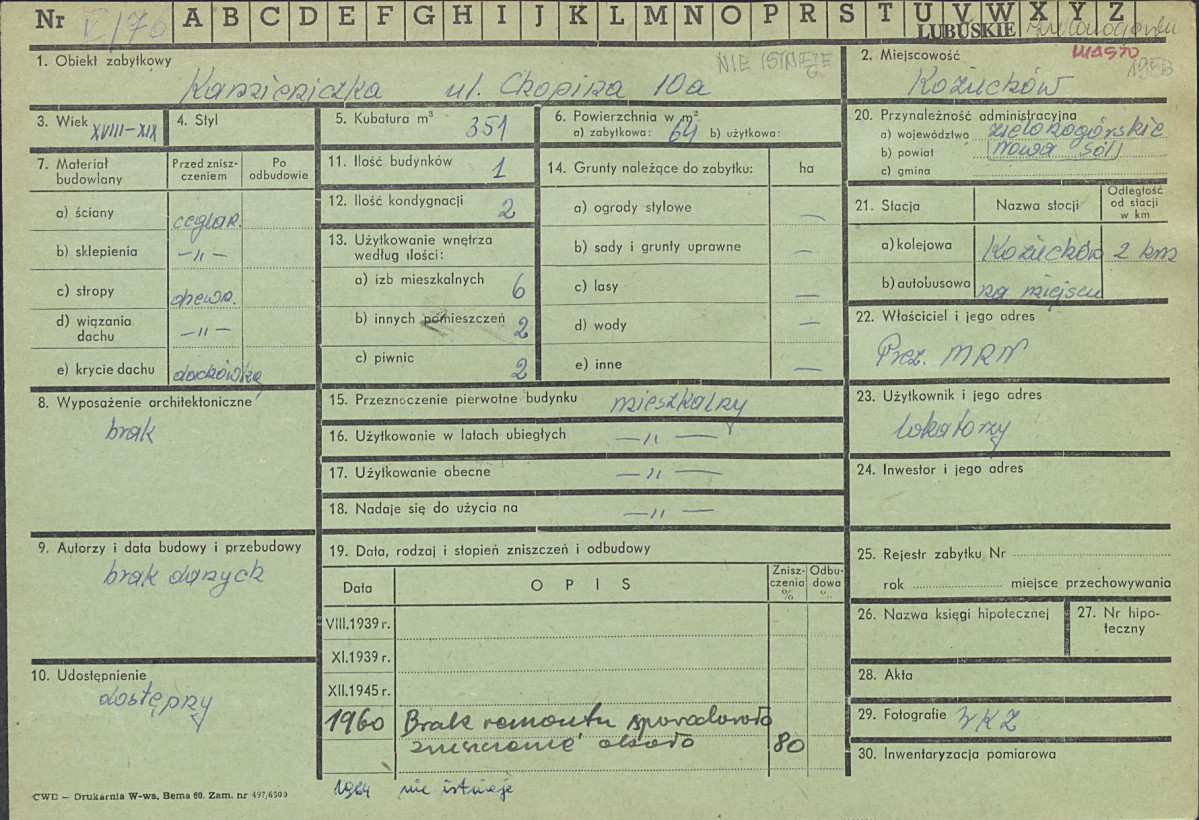 Nr V/76 A B C D E F G H I J K L M N O P R S T U V W X Y Z
LUBUSKIE
1. Obiekt zabytkowy
NIE ISTNIEJE
Kamieniczka ul. Chopina 10a
2. Miejscowość
MIASTO
Kożuchów
3. Wiek XVIII-XIX
4. Styl
5. Kubatura m³ 351
6. Powierzchnia w m²
a) zabytkowa: 64 b) użytkowa:
20. Przynależność administracyjna
a) województwo zielonogórskie
b) powiat Nowa Sól
c) gmina
7. Materiał budowlany
Przed zniszczeniem
Po odbudowie
a) ściany ceglan.
b) sklepienia —„—
c) stropy drewn.
d) wiązania dachu —„—
e) krycie dachu dachówka
11. Ilość budynków 1
12. Ilość kondygnacji 2
13. Użytkowanie wnętrza
według ilości:
a) izb mieszkalnych 6
b) innych pomieszczeń 2
c) piwnic 2
14. Grunty należące do zabytku: ha
a) ogrody stylowe —
b) sady i grunty uprawne —
c) lasy —
d) wody —
e) inne —
21. Stacja
Nazwa stacji
Odległość od stacji w km
a) kolejowa Kożuchów 2 km
b) autobusowa na miejscu
22. Właściciel i jego adres
Prez. MRN
8. Wyposażenie architektoniczne
brak
15. Przeznoczenie pierwotne budynku mieszkalny
16. Użytkowanie w latach ubiegłych —„—
17. Użytkowanie obecne —„—
18. Nadaje się do użycia na —„—
23. Użytkownik i jego adres
lokatorzy
24. Inwestor i jego adres
9. Autorzy i data budowy i przebudowy
brak danych
10. Udostępnienie
dostępny
19. Data, rodzaj i stopień zniszczeń i odbudowy
Data
OPIS
Zniszczenia %
Odbudowa %
VIII.1939 r.
XI.1939 r.
XII.1945 r.
1960 Brak remontu spowodowało
zniszczenie około 80
1964 nie istnieje
25. Rejestr zabytku Nr
rok miejsce przechowywania
26. Nazwa księgi hipotecznej
27. Nr hipoteczny
28. Akta
29. Fotografie WKZ
30. Inwentaryzacja pomiarowa
CWD — Drukarnia W-wa, Bema 60. Zam. nr 497/6500